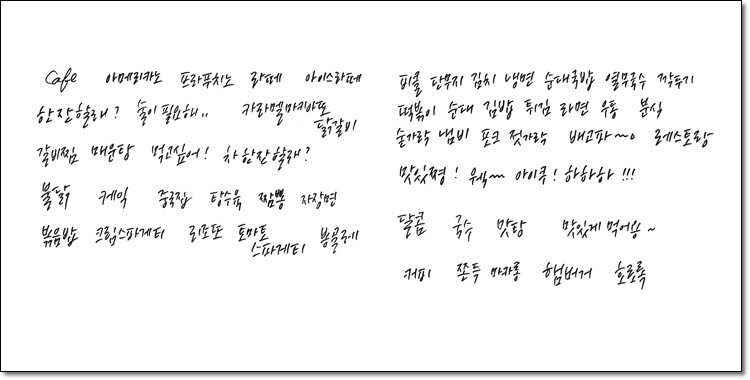 Cafe 아메리카노 프라푸치노 라떼 아이스라떼
한잔할래? 술이 필요해.. 카라멜마키아또
닭갈비
갈비찜 매운탕 먹고싶어! 차 한잔할래?
불닭 케익 중국집 탕수육 짬뽕 자장면
볶음밥 크림스파게티 리조또 토마토
스파게티 봉골레
피클 단무지 김치 냉면 순대국밥 열무국수 깍두기
떡볶이 순대 김밥 튀김 라면 우동 분식
숟가락 냄비 포크 젓가락 배고파~ㅇ 레스토랑
맛있쪙! 우왁~~ 아이쿠! 하하하!!!
달콤 국수 맛탕 맛있게 먹어용~
커피 쫀득 마카롱 햄버거 호로록